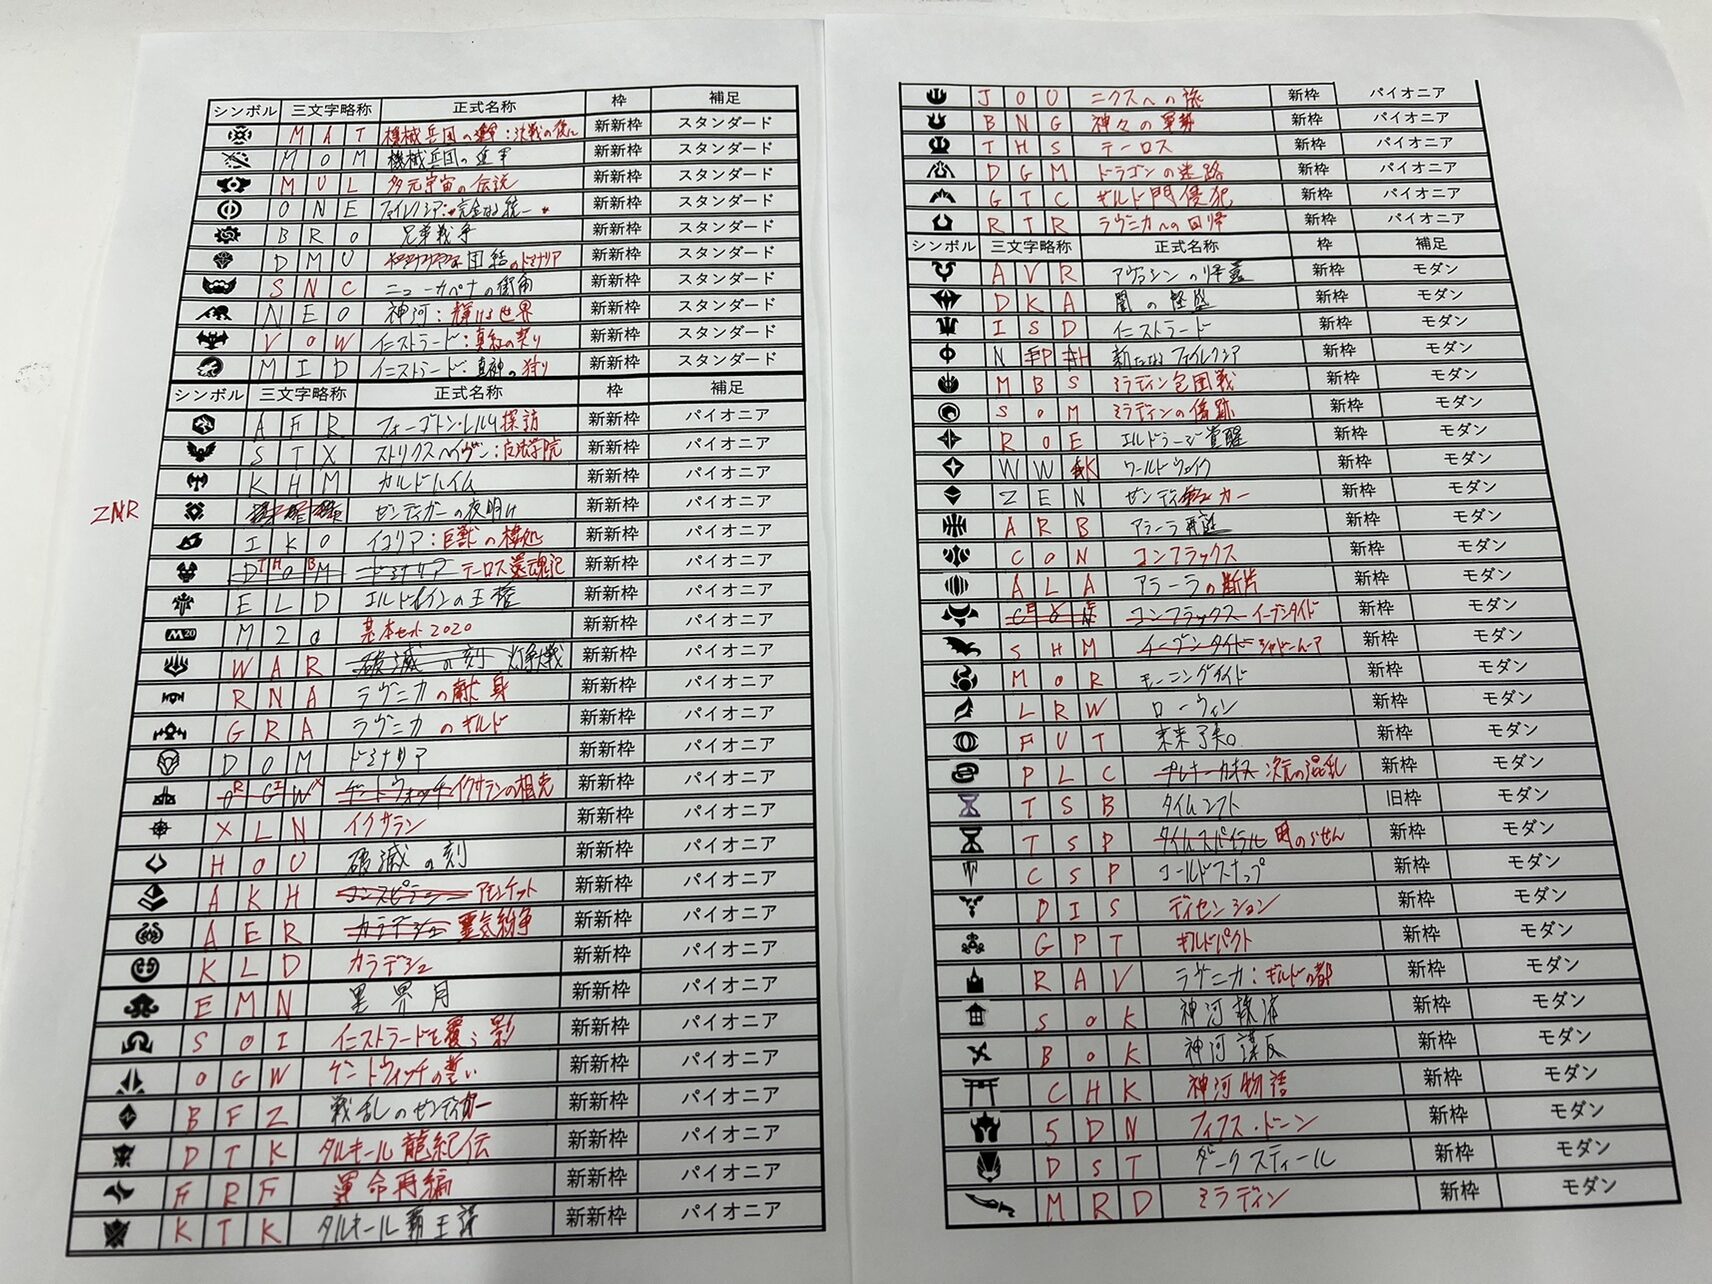 シンボル 三文字略称 正式名称 枠 補足
M A T 機械兵団の進軍:決戦の後に 新新枠 スタンダード
M O M 機械兵団の進軍 新新枠 スタンダード
M U L 多元宇宙の伝説 新新枠 スタンダード
O N E ファイレクシア:完全なる統一 新新枠 スタンダード
B R O 兄弟戦争 新新枠 スタンダード
D M U 団結のドミナリア 新新枠 スタンダード
S N C ニューカペナの街角 新新枠 スタンダード
N E O 神河:輝ける世界 新新枠 スタンダード
V O W イニストラード:真紅の契り 新新枠 スタンダード
M I D イニストラード:真夜の狩り 新新枠 スタンダード
シンボル 三文字略称 正式名称 枠 補足
A F R フォーゴトン・レルム探訪 新新枠 パイオニア
S T X ストリクスヘイヴン:魔法学院 新新枠 パイオニア
K H M カルドハイム 新新枠 パイオニア
ZNR ゼンディカーの夜明け 新新枠 パイオニア
I K O イコリア:巨獣の棲処 新新枠 パイオニア
D O M T H B ドミナリア テーロス還魂記 新新枠 パイオニア
E L D エルドレインの王権 新新枠 パイオニア
M20 M 2 0 基本セット2020 新新枠 パイオニア
W A R 破滅の刻 灯争大戦 新新枠 パイオニア
R N A ラヴニカの献身 新新枠 パイオニア
G R A ラヴニカのギルド 新新枠 パイオニア
D O M ドミナリア 新新枠 パイオニア
O G W R I X ゲートウォッチ イクサランの相克 新新枠 パイオニア
X L N イクサラン 新新枠 パイオニア
H O U 破滅の刻 新新枠 パイオニア
A K H コンスピラシー アモンケット 新新枠 パイオニア
A E R カラデシュ 霊気紛争 新新枠 パイオニア
K L D カラデシュ 新新枠 パイオニア
E M N 異界月 新新枠 パイオニア
S O I イニストラードを覆う影 新新枠 パイオニア
O G W ゲートウォッチの誓い 新新枠 パイオニア
B F Z 戦乱のゼンディカー 新新枠 パイオニア
D T K タルキール龍紀伝 新新枠 パイオニア
F R F 運命再編 新新枠 パイオニア
K T K タルキール覇王譚 新新枠 パイオニア
J O U ニクスへの旅 新枠 パイオニア
B N G 神々の軍勢 新枠 パイオニア
T H S テーロス 新枠 パイオニア
D G M ドラゴンの迷路 新枠 パイオニア
G T C ギルド門侵犯 新枠 パイオニア
R T R ラヴニカへの回帰 新枠 パイオニア
シンボル 三文字略称 正式名称 枠 補足
A V R アヴァシンの帰還 新枠 モダン
D K A 闇の隆盛 新枠 モダン
I S D イニストラード 新枠 モダン
N P H 新たなるファイレクシア 新枠 モダン
M B S ミラディン包囲戦 新枠 モダン
S O M ミラディンの傷跡 新枠 モダン
R O E エルドラージ覚醒 新枠 モダン
W W K ワールドウェイク 新枠 モダン
Z E N ゼンディカー 新枠 モダン
A R B アラーラ再誕 新枠 モダン
C O N コンフラックス 新枠 モダン
A L A アラーラの断片 新枠 モダン
コンフラックス イーブンタイド 新枠 モダン
S H M イーブンタイド シャドームーア 新枠 モダン
M O R モーニングタイド 新枠 モダン
L R W ローウィン 新枠 モダン
F U T 未来予知 新枠 モダン
P L C プレナーカオス 次元の混乱 新枠 モダン
T S B タイムシフト 旧枠 モダン
T S P タイムスパイラル 時のらせん 新枠 モダン
C S P コールドスナップ 新枠 モダン
D I S ディセンション 新枠 モダン
G P T ギルドパクト 新枠 モダン
R A V ラヴニカ:ギルドの都 新枠 モダン
S O K 神河救済 新枠 モダン
B O K 神河謀反 新枠 モダン
C H K 神河物語 新枠 モダン
5 D N フィフス・ドーン 新枠 モダン
D S T ダークスティール 新枠 モダン
M R D ミラディン 新枠 モダン